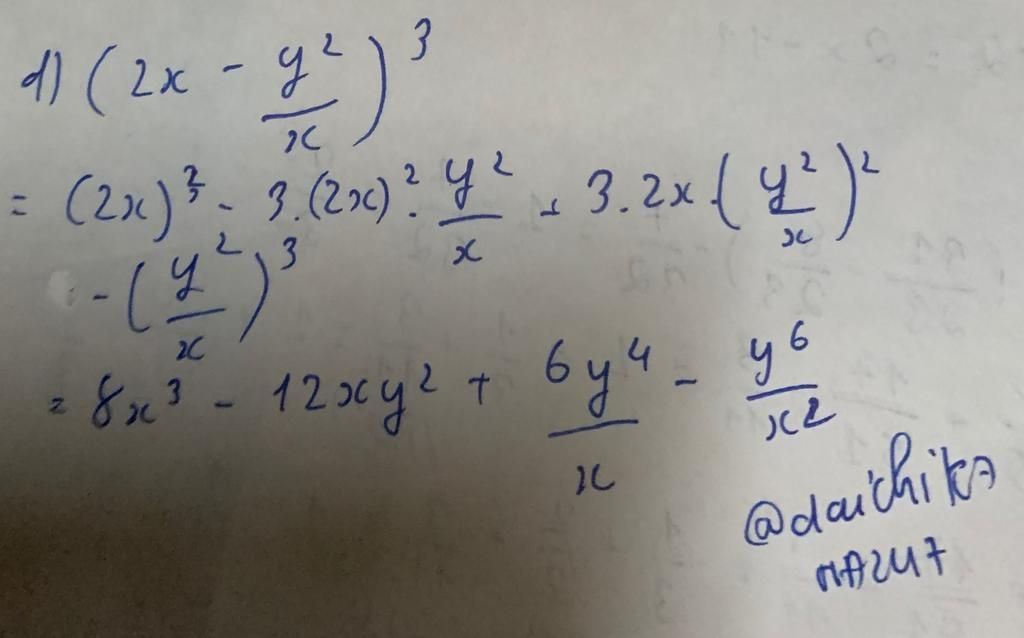 d) (2x - y²/x)³
= (2x)³ - 3.(2x)² . y²/x + 3.2x.(y²/x)²
- (y²/x)³
= 8x³ - 12xy² + 6y⁴/x - y⁶/x²
@daichika
mazu7